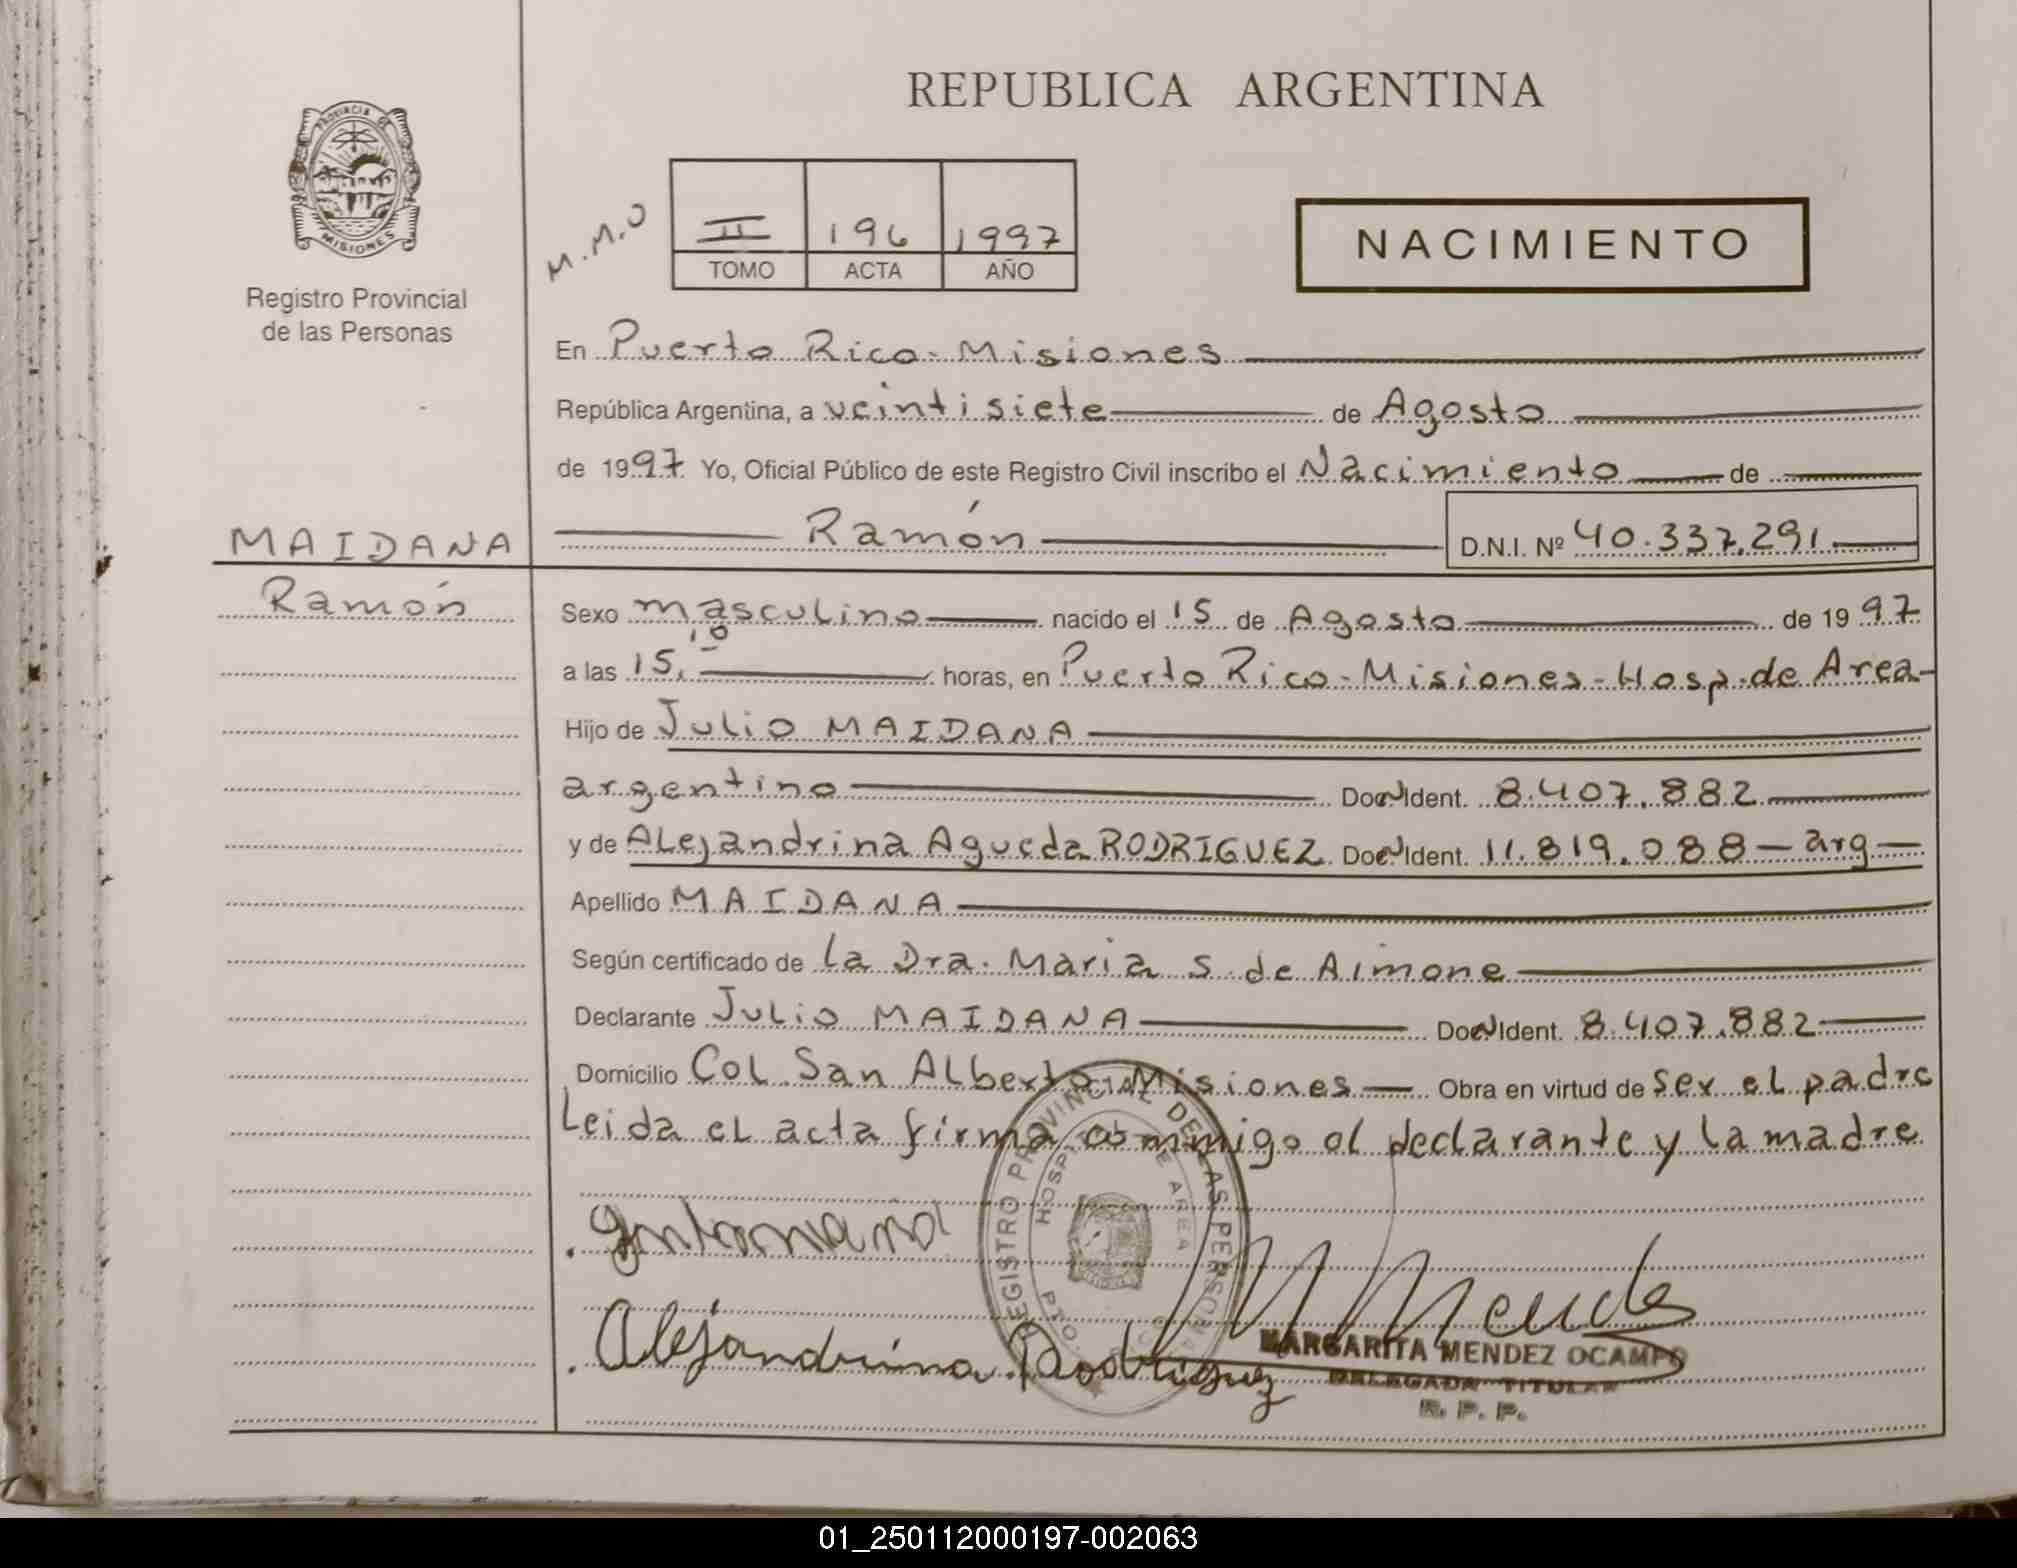 REPUBLICA ARGENTINA
PROVINCIA DE
MISIONES
Registro Provincial
de las Personas
M.M.O
II 196 1997
TOMO ACTA AÑO
NACIMIENTO
En Puerto Rico - Misiones
República Argentina, a veintisiete de Agosto
de 1997 Yo, Oficial Público de este Registro Civil inscribo el Nacimiento de
MAIDANA
Ramón
Ramón D.N.I. Nº 40.337.291
Sexo masculino nacido el 15 de Agosto de 1997
a las 15,10 horas, en Puerto Rico - Misiones - Hosp. de Area -
Hijo de Julio MAIDANA
argentino Doc. Ident. 8.407.882
y de Alejandrina Agueda RODRIGUEZ Doc. Ident. 11.819.088 - arg -
Apellido MAIDANA
Según certificado de la Dra. Maria S de Aimone
Declarante Julio MAIDANA Doc. Ident. 8.407.882
Domicilio Col. San Alberto - Misiones - Obra en virtud de ser el padre
Leida el acta firma conmigo el declarante y la madre
REGISTRO PROVINCIAL DE LAS PERSONAS
HOSPITAL DE AREA
PTO. RICO
Alejandrina Rodriguez
M Mendez
MARGARITA MENDEZ OCAMPO
DELEGADA TITULAR
R. P. P.
01_250112000197-002063